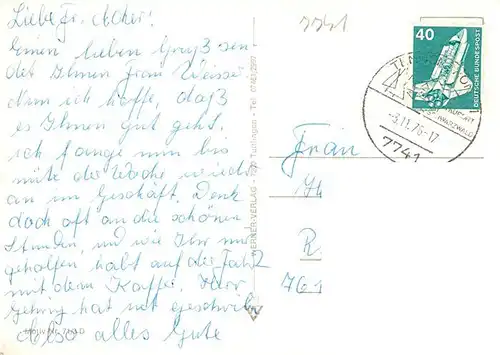 Liebe Fr. Acker!
Einen lieben Gruß sen
det Ihnen Frau Weisse.
Nun ich hoffe, daß
es Ihnen Gut geht.
ich fange nun bis
mitte der Woche wieder
an im Geschäft. Denk
doch oft an die schönen
Stunden, und wie Ihr mir
geholfen, habt auf der Fahrt
mit dem Kaffe. Herr
Gehring hat net geschrieb.
Also alles Gute
7741
40
DEUTSCHE BUNDESPOST
KURORT
SCHWARZWALD
-3.11.76-17
7741
Frau
R
761
WERNER-VERLAG
Tuttlingen
Tel.